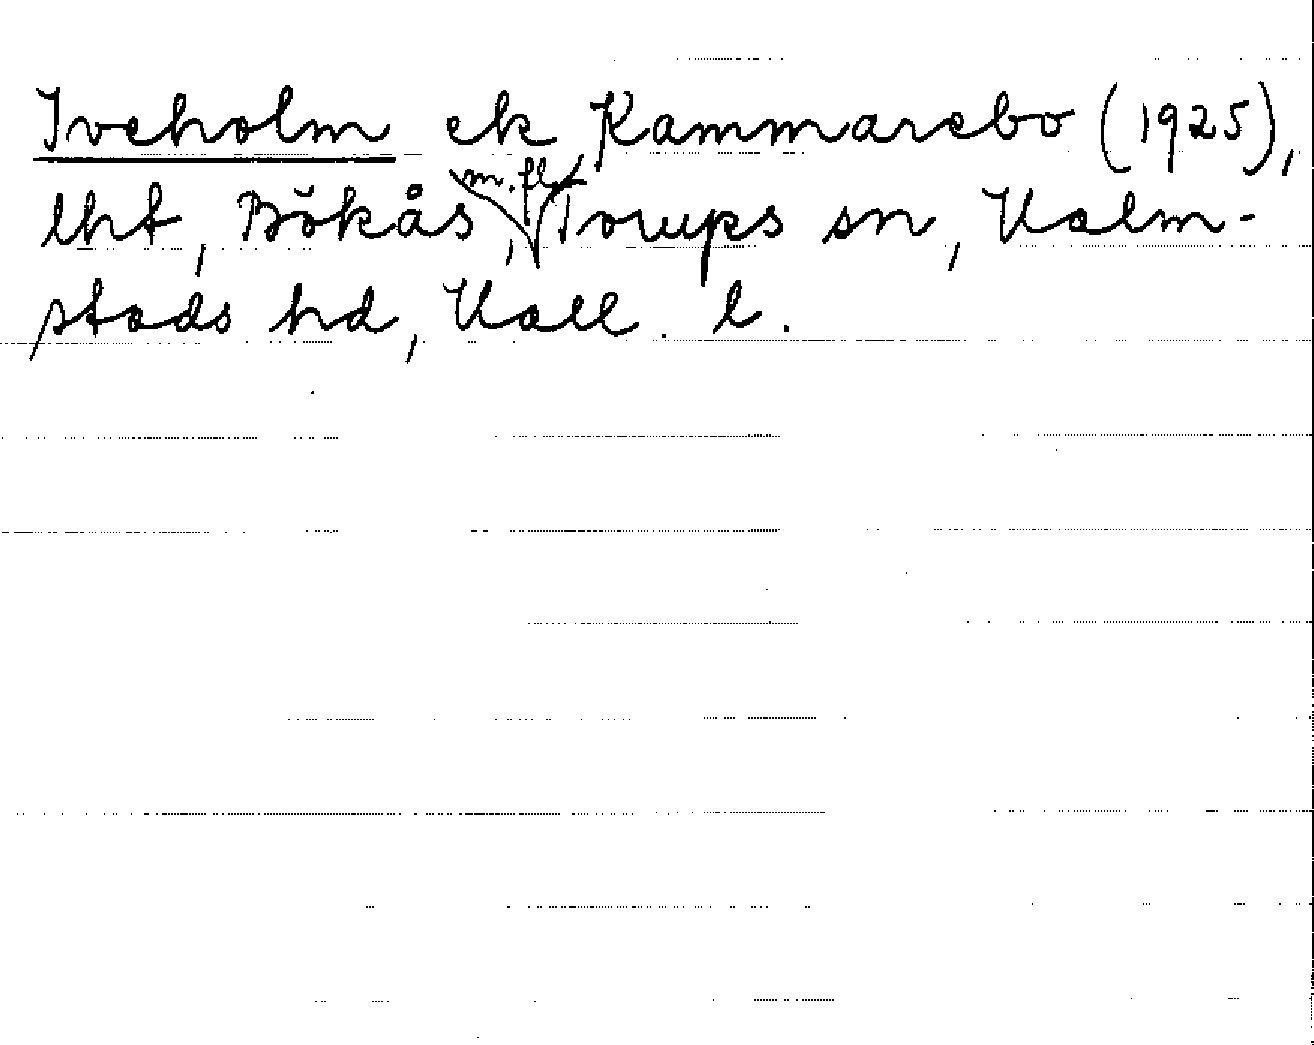 Iveholm ek Kammarebo (1925),
lht, Bökås m. fl., Torups sn, Halm-
stads hd, Hall. l.